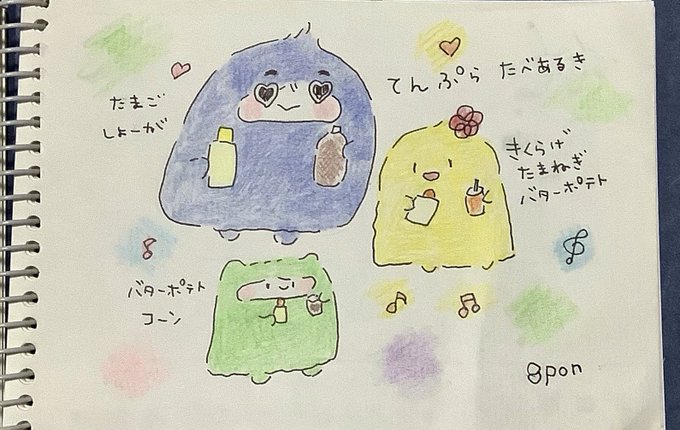 てんぷら たべあるき
たまご
しょーが
きくらげ
たまねぎ
バターポテト
バターポテト
コーン
8pon